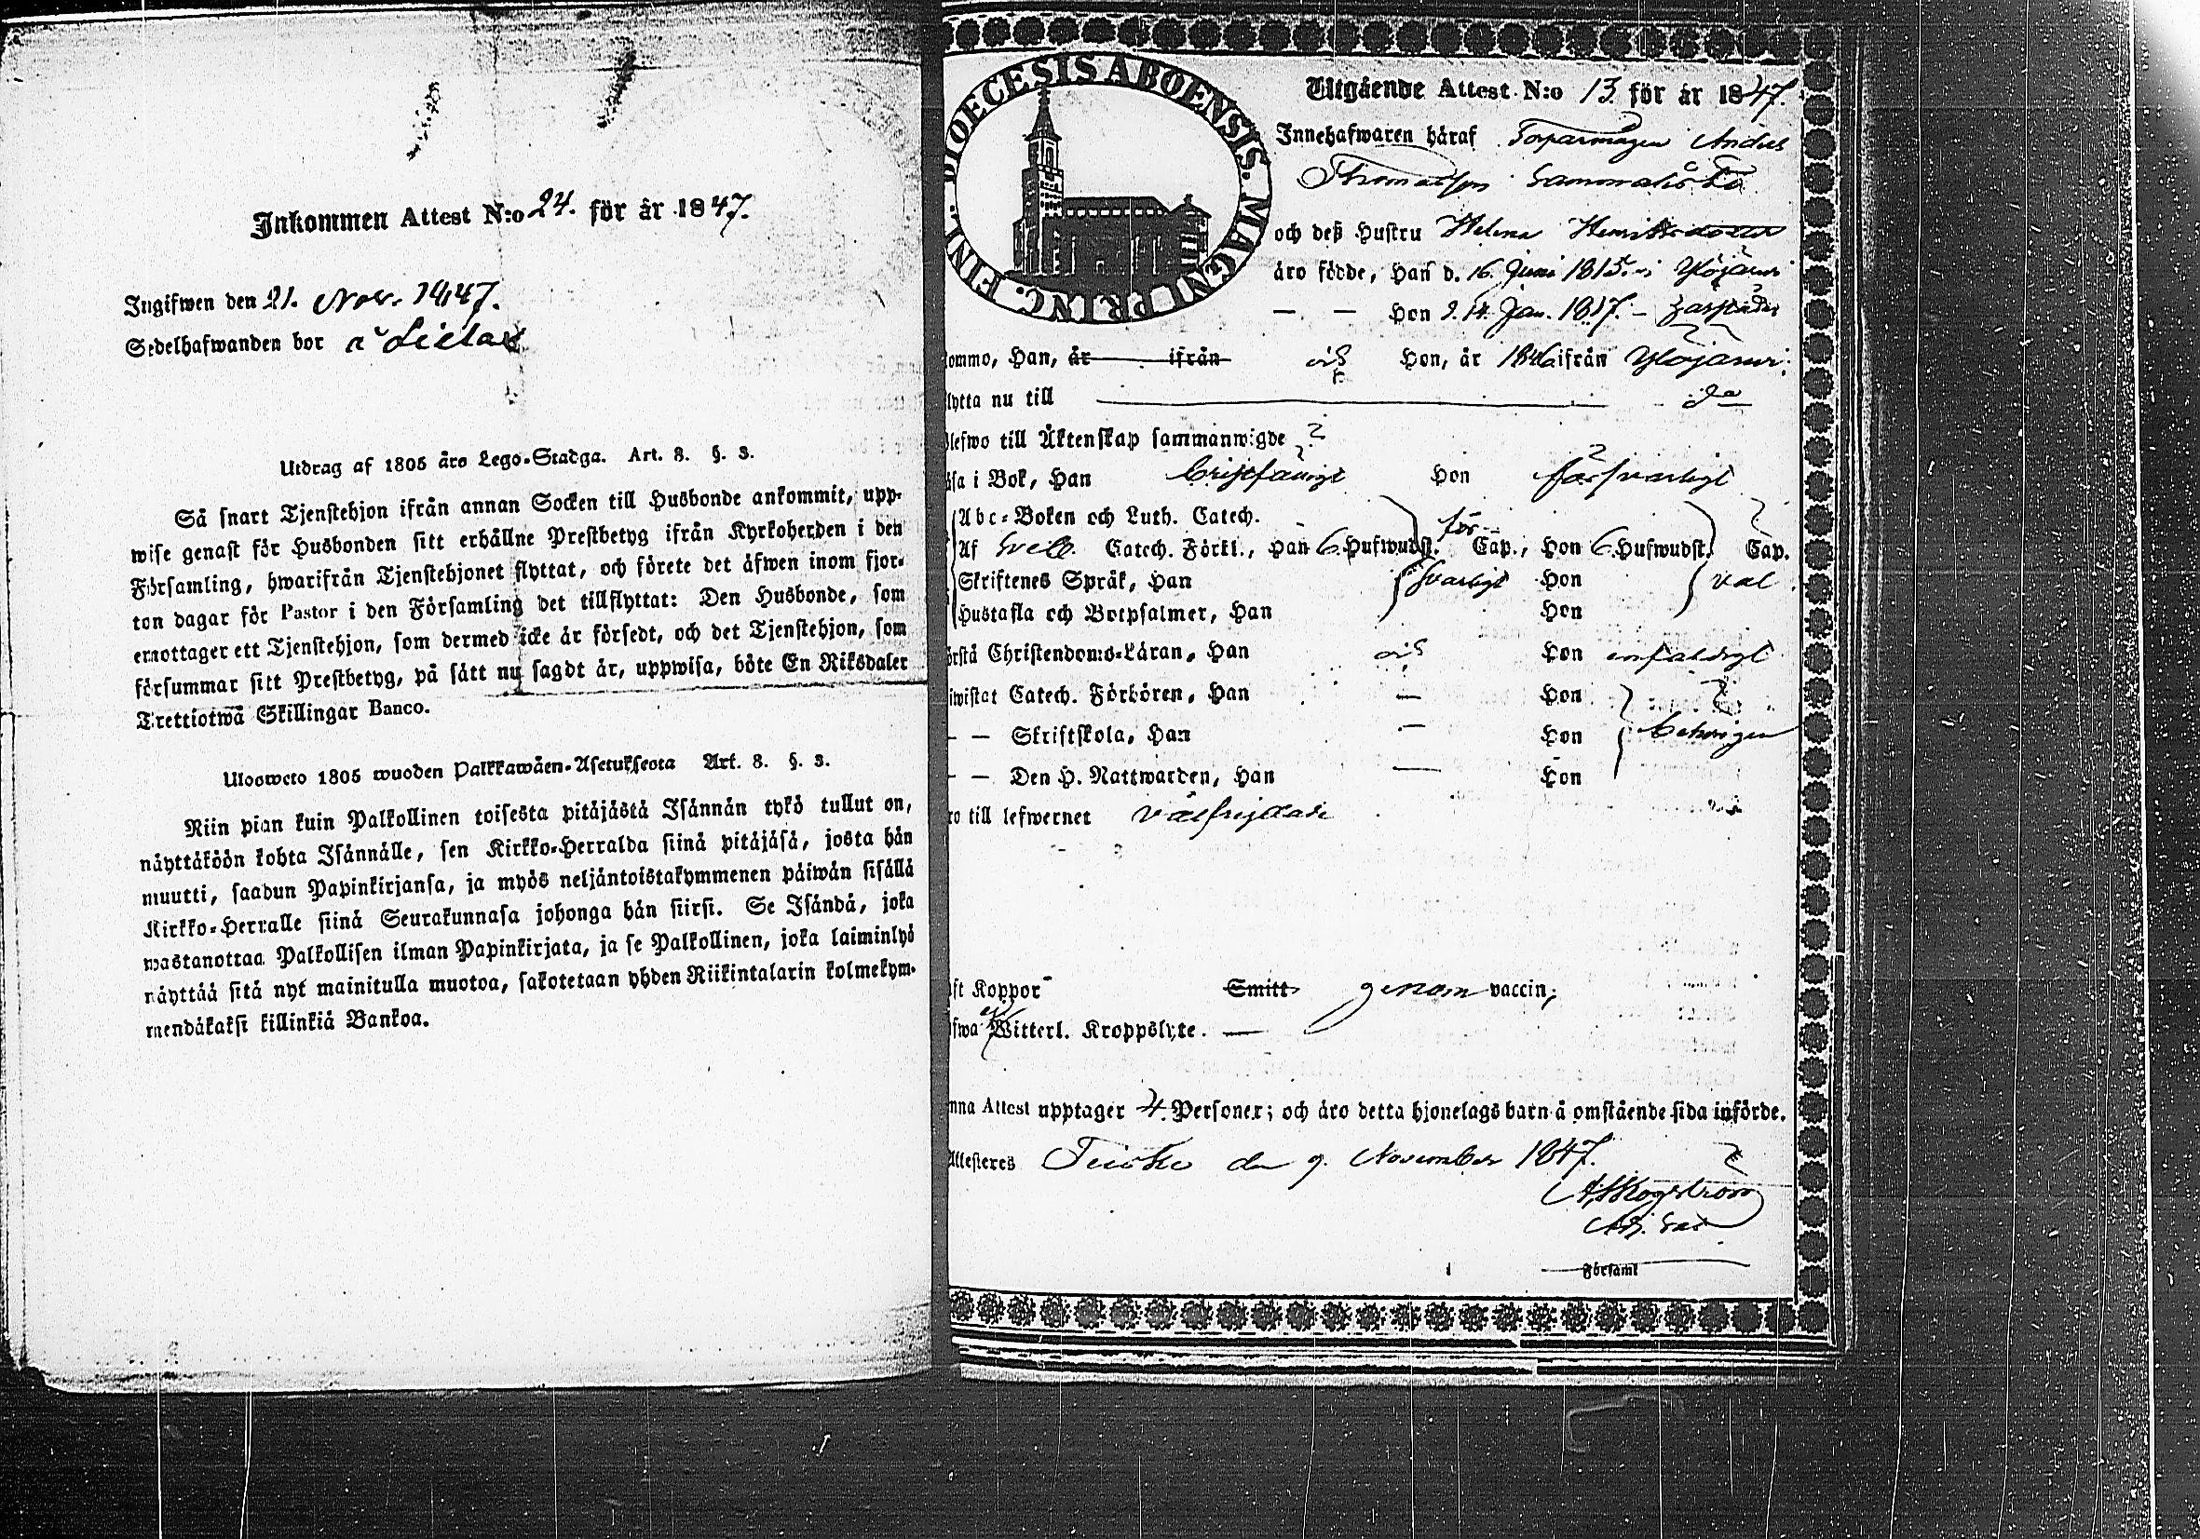 Inkommen Attest N:o 24. för år 1847.
Ingifwen den 21. Nov. 1847.
Sedelhafwanden bor å Lielax
Utdrag af 1805 års Lego-Stadga. Art. 8. §. 3.
Så snart Tjenstehjon ifrån annan Socken till Husbonde ankommit, upp-
wise genast för Husbonden sitt erhållne Prestbetyg ifrån Kyrkoherden i den
Församling, hwarifrån Tjenstehjonet flyttat, och förete det äfwen inom fjor-
ton dagar för Pastor i den Församling det tillflyttat: Den Husbonde, som
emottager ett Tjenstehjon, som dermed icke är försedt, och det Tjenstehjon, som
försummar sitt Prestbetyg, på sätt nu sagdt är, uppwisa, böte En Riksdaler
Trettiotwå Skillingar Banco.
Ulosweto 1805 wuoden Palkkawäen-Asetuksesta Art. 8. §. 3.
Niin pian kuin Palkollinen toisesta pitäjästä Isännän tykö tullut on,
näyttäköön kohta Isännälle, sen Kirkko-Herralda siinä pitäjäsä, josta hän
muutti, saadun Papinkirjansa, ja myös neljäntoistakymmenen päiwän sisällä
Kirkko-Herralle siinä Seurakunnasa johonga hän siirsi. Se Isändä, joka
wastanottaa Palkollisen ilman Papinkirjata, ja se Palkollinen, joka laiminlyö
näyttää sitä nyt mainitulla muotoa, sakotetaan yhden Riikintalarin kolmekym-
mendäkaksi killinkiä Bankoa.
DIOECESIS ABOENSIS. MAGNI PRINC. FINL.
Utgående Attest N:o 13 för år 1847.
Innehafwaren häraf Torparmågen Anders
Thomasson Sammalisto
och deß Hustru Helena Henriksdotter
äro födde, Han d. 16 Juni 1815. i Ylöjärvi
— — Hon d. 14. Jan. 1817. —
ommo, Han, år ifrån Hon, år 1846 ifrån Ylöjärvi.
lytta nu till do
lefwo till Äktenskap sammanwigde
sa i Bok, Han Hon försvarligt
Abc-Boken och Luth. Catech.
Af Sveb. Catech. Förkl., Han 6. Hufwudst. för- Cap., Hon 6. Hufwudst. Cap.
Skriftenes Språk, Han svarligt Hon väl
Hustafla och Botpsalmer, Han Hon
örstå Christendoms-Läran, Han Hon enfaldigt
iwistat Catech. Förhören, Han — Hon
— — Skriftskola, Han — Hon behörigen
— — Den H. Nattwarden, Han — Hon
ro till lefwernet välfrejdade
ft Koppor Smitt genom vaccin;
fwa ej Witterl. Kroppslyte. —
nna Attest upptager 4. Personer; och äro detta hjonelags barn å omstående sida införde.
Attesteres Teisko den 9. November 1847.
A. Skogström
Adj. Sac
i Församl